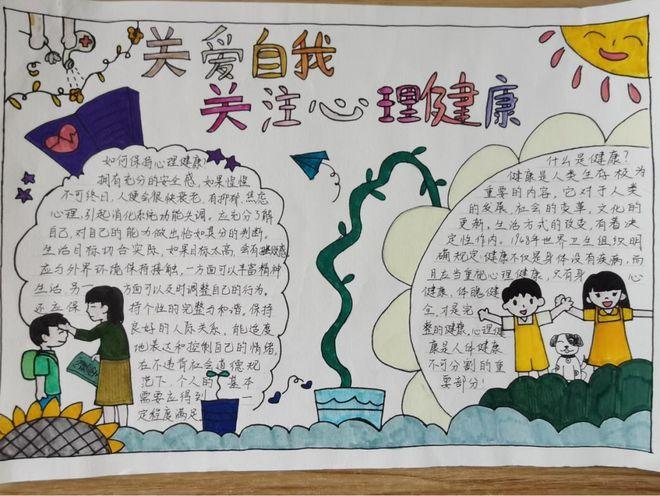 关爱自我
关注心理健康
如何保持心理健康?
拥有充分的安全感,如果惶惶
不可终日,人便会很快衰老,有抑郁,焦虑
心理,引起消化系统功能失调,应充分了解
自己,对自己的能力做出恰如其分的判断。
生活目标切合实际,如果目标太高,会有挫败感
应与外界环境保持接触,一方面可以丰富精神
生活,另一方面可以及时调整自己的行为。
还应保持个性的完整与和谐,保持
良好的人际关系,能适度
地表达和控制自己的情绪,
在不违背社会道德规
范下,个人的基本
需要应得到一
定程度满足
什么是健康?
健康是人类生存极为
重要的内容,它对于人类
的发展,社会的变革,文化的
更新,生活方式的改变,有着
决定性作用。1948年世界卫生组织明
确规定:健康不仅是身体没有疾病,而
且应当重视心理健康,只有身心
健康,体魄健
全,才是完
整的健康,心理健
康是人体健康
不可分割的重
要部分!